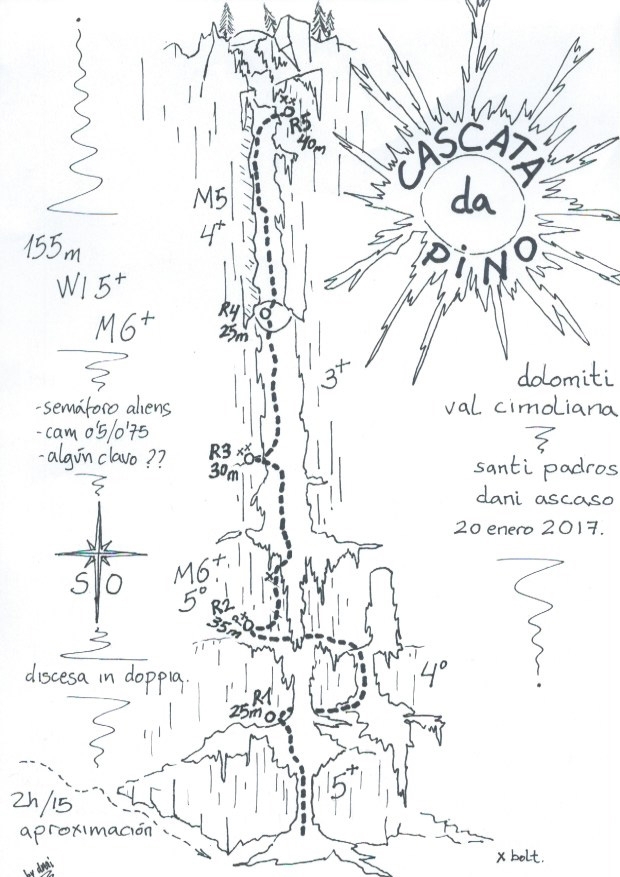 CASCATA
da
PiNO
155m
WI 5+
M6+
-semáforo aliens
-cam 0'5/0'75
-algún clavo ??
S O
discesa in doppia.
2h/15
aproximación
by dani
R5
40m
M5
4+
R4
25m
3+
R3 xx
30m
M6+
5°
R2
35m
4°
R1
25m
5+
dolomiti
val cimoliana
santi padros
dani ascaso
20 enero 2017.
x bolt.